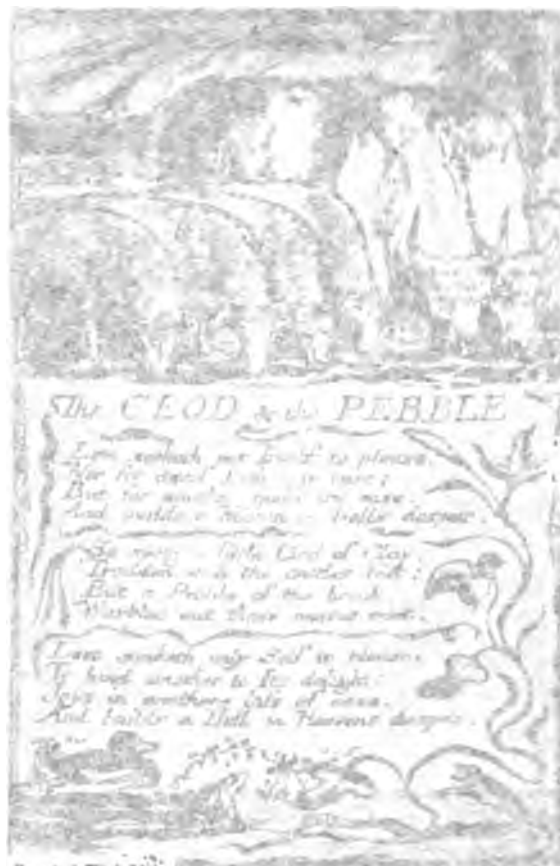 The CLOD & the PEBBLE
Love seeketh not Itself to please,
Nor for itself hath any care;
But for another gives its ease,
And builds a Heaven in Hells despair.
So sang a little Clod of Clay,
Trodden with the cattles feet:
But a Pebble of the brook,
Warbled out these metres meet.
Love seeketh only Self to please,
To bind another to Its delight:
Joys in anothers loss of ease,
And builds a Hell in Heavens despite.